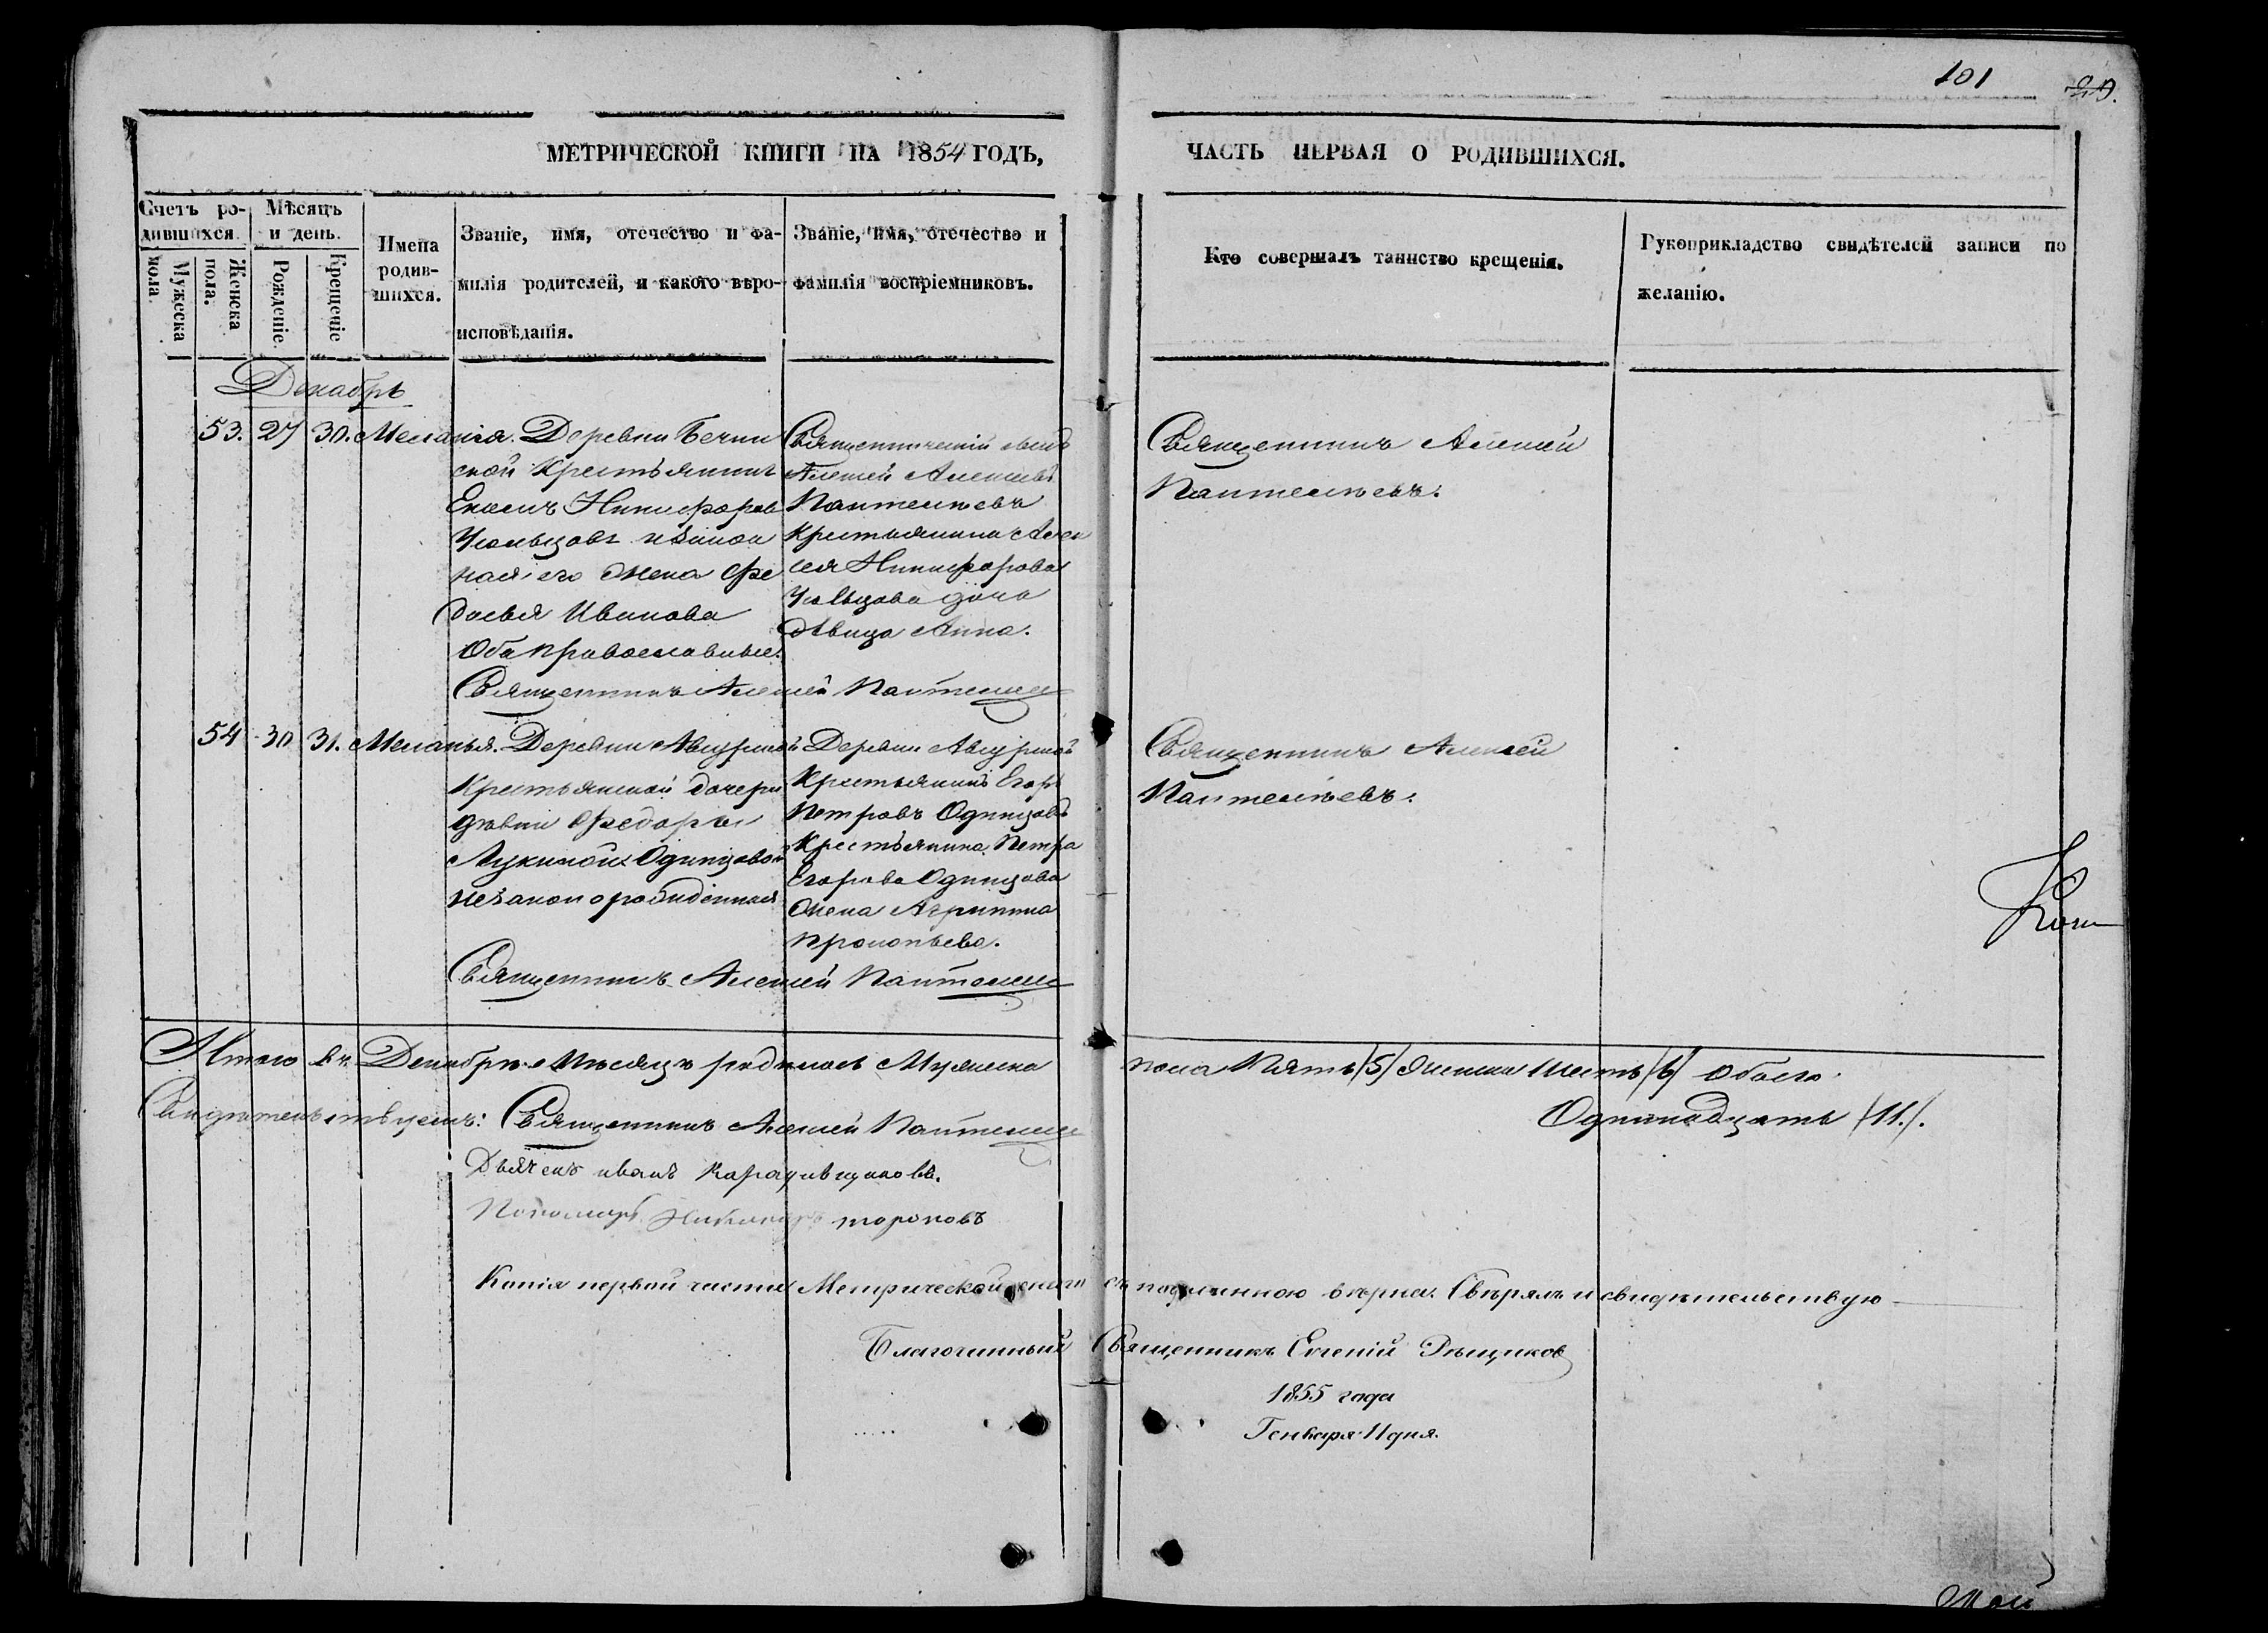 101
29.
МЕТРИЧЕСКОЙ КНИГИ НА 1854 ГОДЪ,
ЧАСТЬ ПЕРВАЯ О РОДИВШИХСЯ.
Счетъ ро-
дившихся.
Мужеска
пола.
Женска
пола.
Мѣсяцъ
и день.
Рожденіе.
Крещеніе
Имена
родив-
шихся.
Званіе, имя, отечество и фа-
милія родителей, и какого вѣро-
исповѣданія.
Званіе, имя, отечество и
фамилія воспріемниковъ.
Кто совершалъ таинство крещенія.
Рукоприкладство свидѣтелей записи по
желанію.
Декабрь
53. 27 30. Меланія.
Деревни
ской Крестьянинъ
Никифоровъ
Усольцовъ и закон
ная его жена Фе
досья Иванова
Оба православные.
Священническій сынъ
Алексѣй Алексѣевъ
Пантелѣевъ
Крестьянина Алек
сея Никифорова
Усольцова дочь
дѣвица Анна.
Священникъ Алексѣй
Пантелѣевъ.
Священникъ Алексѣй Пантелеевъ
54 30 31. Меланья.
Деревни
Крестьянской дочери
дѣвки Федоры
Лукиной Одинцовой
незаконорожденная
Деревни
Крестьянинъ Егоръ
Петровъ Одинцовъ
Крестьянина Петра
Егорова Одинцова
жена Агрипина
Прокопьева.
Священникъ Алексѣй
Пантелѣевъ.
Священникъ Алексѣй Пантелеевъ
Итого въ Декабрѣ Мѣсяцѣ родилось Мужеска пола Пять /5/ женска Шесть /6/ обоего
Одиннадцать /11./.
Свидѣтельствуемъ: Священникъ Алексѣй Пантелеевъ
Дьячекъ иванъ
Пономарь тороповъ
Копія первой части Метрической книги съ подлинною вѣрна. Свѣрялъ и свидѣтельствую
Благочинный Священникъ Евгеній
1855 года
Генваря 11 дня.